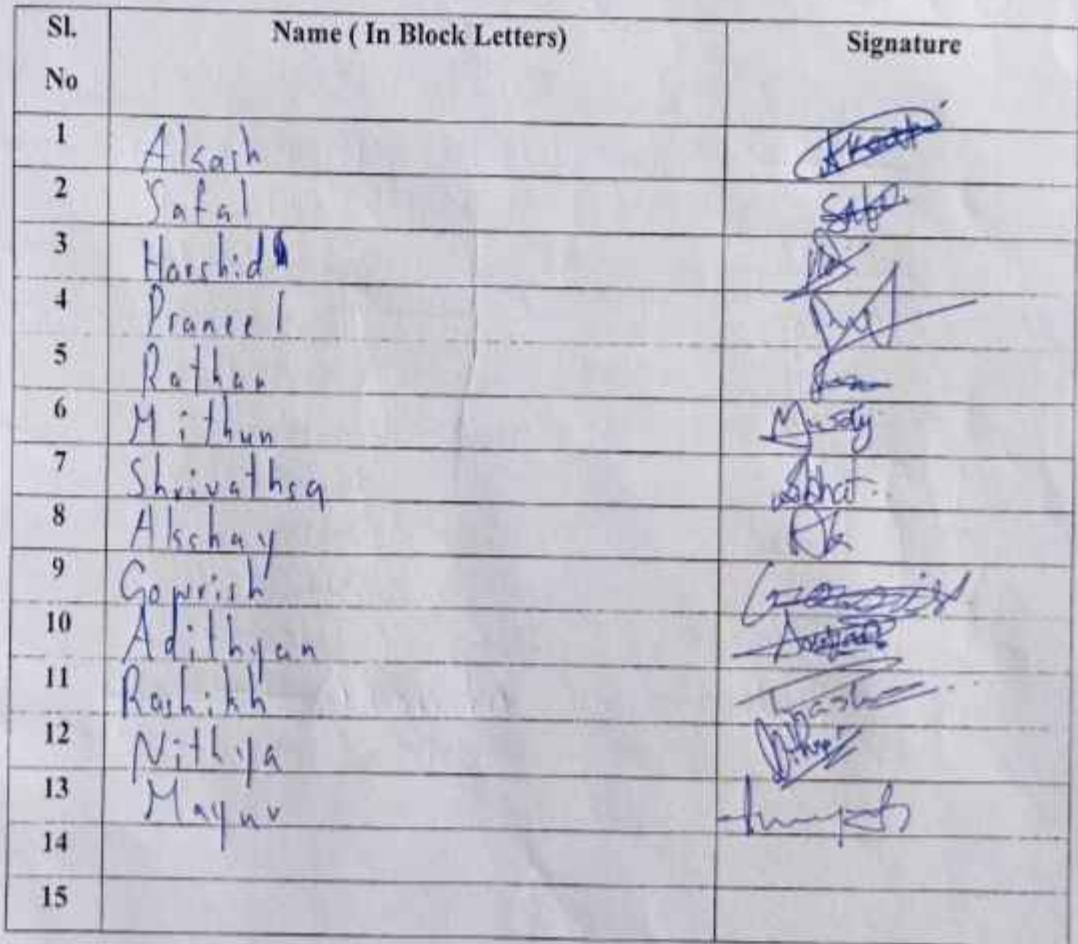 Sl. No Name ( In Block Letters) Signature
1 Akash Akash
2 Safal Safal
3 Harshid
4 Praneel
5 Rathan
6 Mithun
7 Shrivathsa Bhat
8 Akshay Ak
9 Gowrish
10 Adithyan
11 Rashikh
12 Nithya
13 Mayur
14
15